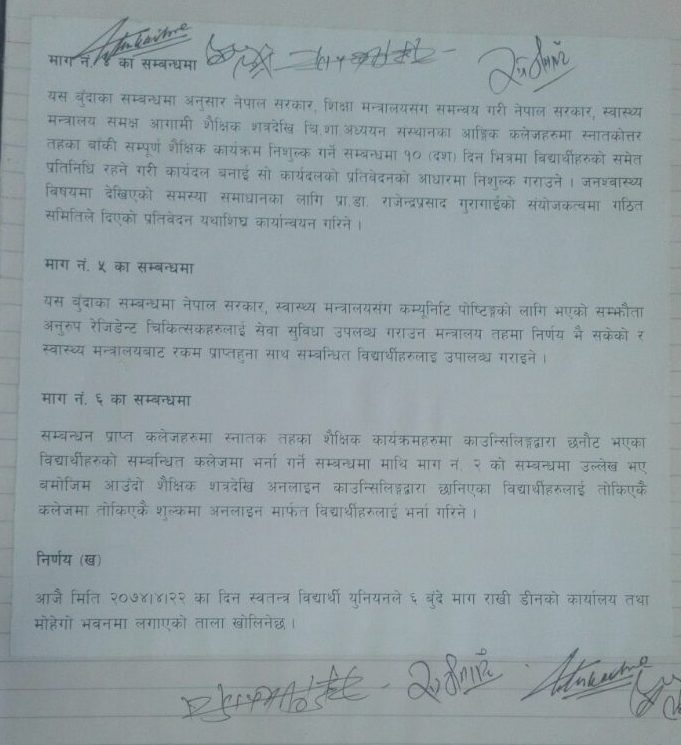 माग नं. ४ का सम्बन्धमा
यस बुंदाका सम्बन्धमा अनुसार नेपाल सरकार, शिक्षा मन्त्रालयसंग समन्वय गरी नेपाल सरकार, स्वास्थ्य
मन्त्रालय समक्ष आगामी शैक्षिक शत्रदेखि चि शा अध्ययन संस्थानका आङ्गिक कलेजहरुमा स्नातकोत्तर
तहका बाँकी सम्पूर्ण शैक्षिक कार्यक्रम निशुल्क गर्ने सम्बन्धमा १० (दश) दिन भित्रमा विद्यार्थीहरुको समेत
प्रतिनिधि रहने गरी कार्यदल बनाई सो कार्यदलको प्रतिवेदनको आधारमा निशुल्क गराउने । जनश्वास्थ्य
विषयमा देखिएको समस्या समाधानका लागि प्रा.डा. राजेन्द्रप्रसाद गुरागाईको संयोजकत्वमा गठित
समितिले दिएको प्रतिवेदन यथाशिघ्र कार्यान्वयन गरिने ।
माग नं. ५ का सम्बन्धमा
यस बुंदाका सम्बन्धमा नेपाल सरकार, स्वास्थ्य मन्त्रालयसंग कम्यूनिटि पोष्टिङ्गको लागि भएको सम्झौता
अनुरुप रेजिडेन्ट चिकित्सकहरुलाई सेवा सुविधा उपलब्ध गराउन मन्त्रालय तहमा निर्णय भै सकेको र
स्वास्थ्य मन्त्रालयबाट रकम प्राप्तहुना साथ सम्बन्धित विद्यार्थीहरुलाइ उपालब्ध गराइने ।
माग नं. ६ का सम्बन्धमा
सम्बन्धन प्राप्त कलेजहरुमा स्नातक तहका शैक्षिक कार्यक्रमहरुमा काउन्सिलिङ्गद्वारा छनौट भएका
विद्यार्थीहरुको सम्बन्धित कलेजमा भर्ना गर्ने सम्बन्धमा माथि माग नं. २ को सम्बन्धमा उल्लेख भए
बमोजिम आउंदो शैक्षिक शत्रदेखि अनलाइन काउन्सिलिङ्गद्वारा छानिएका विद्यार्थीहरुलाई तोकिएकै
कलेजमा तोकिएकै शुल्कमा अनलाइन मार्फत विद्यार्थीहरुलाई भर्ना गरिने ।
निर्णय (ख)
आजै मिति २०७४।४।२२ का दिन स्वतन्त्र विद्यार्थी युनियनले ६ बुंदे माग राखी डीनको कार्यालय तथा
मोहेगो भवनमा लगाएको ताला खोलिनेछ ।